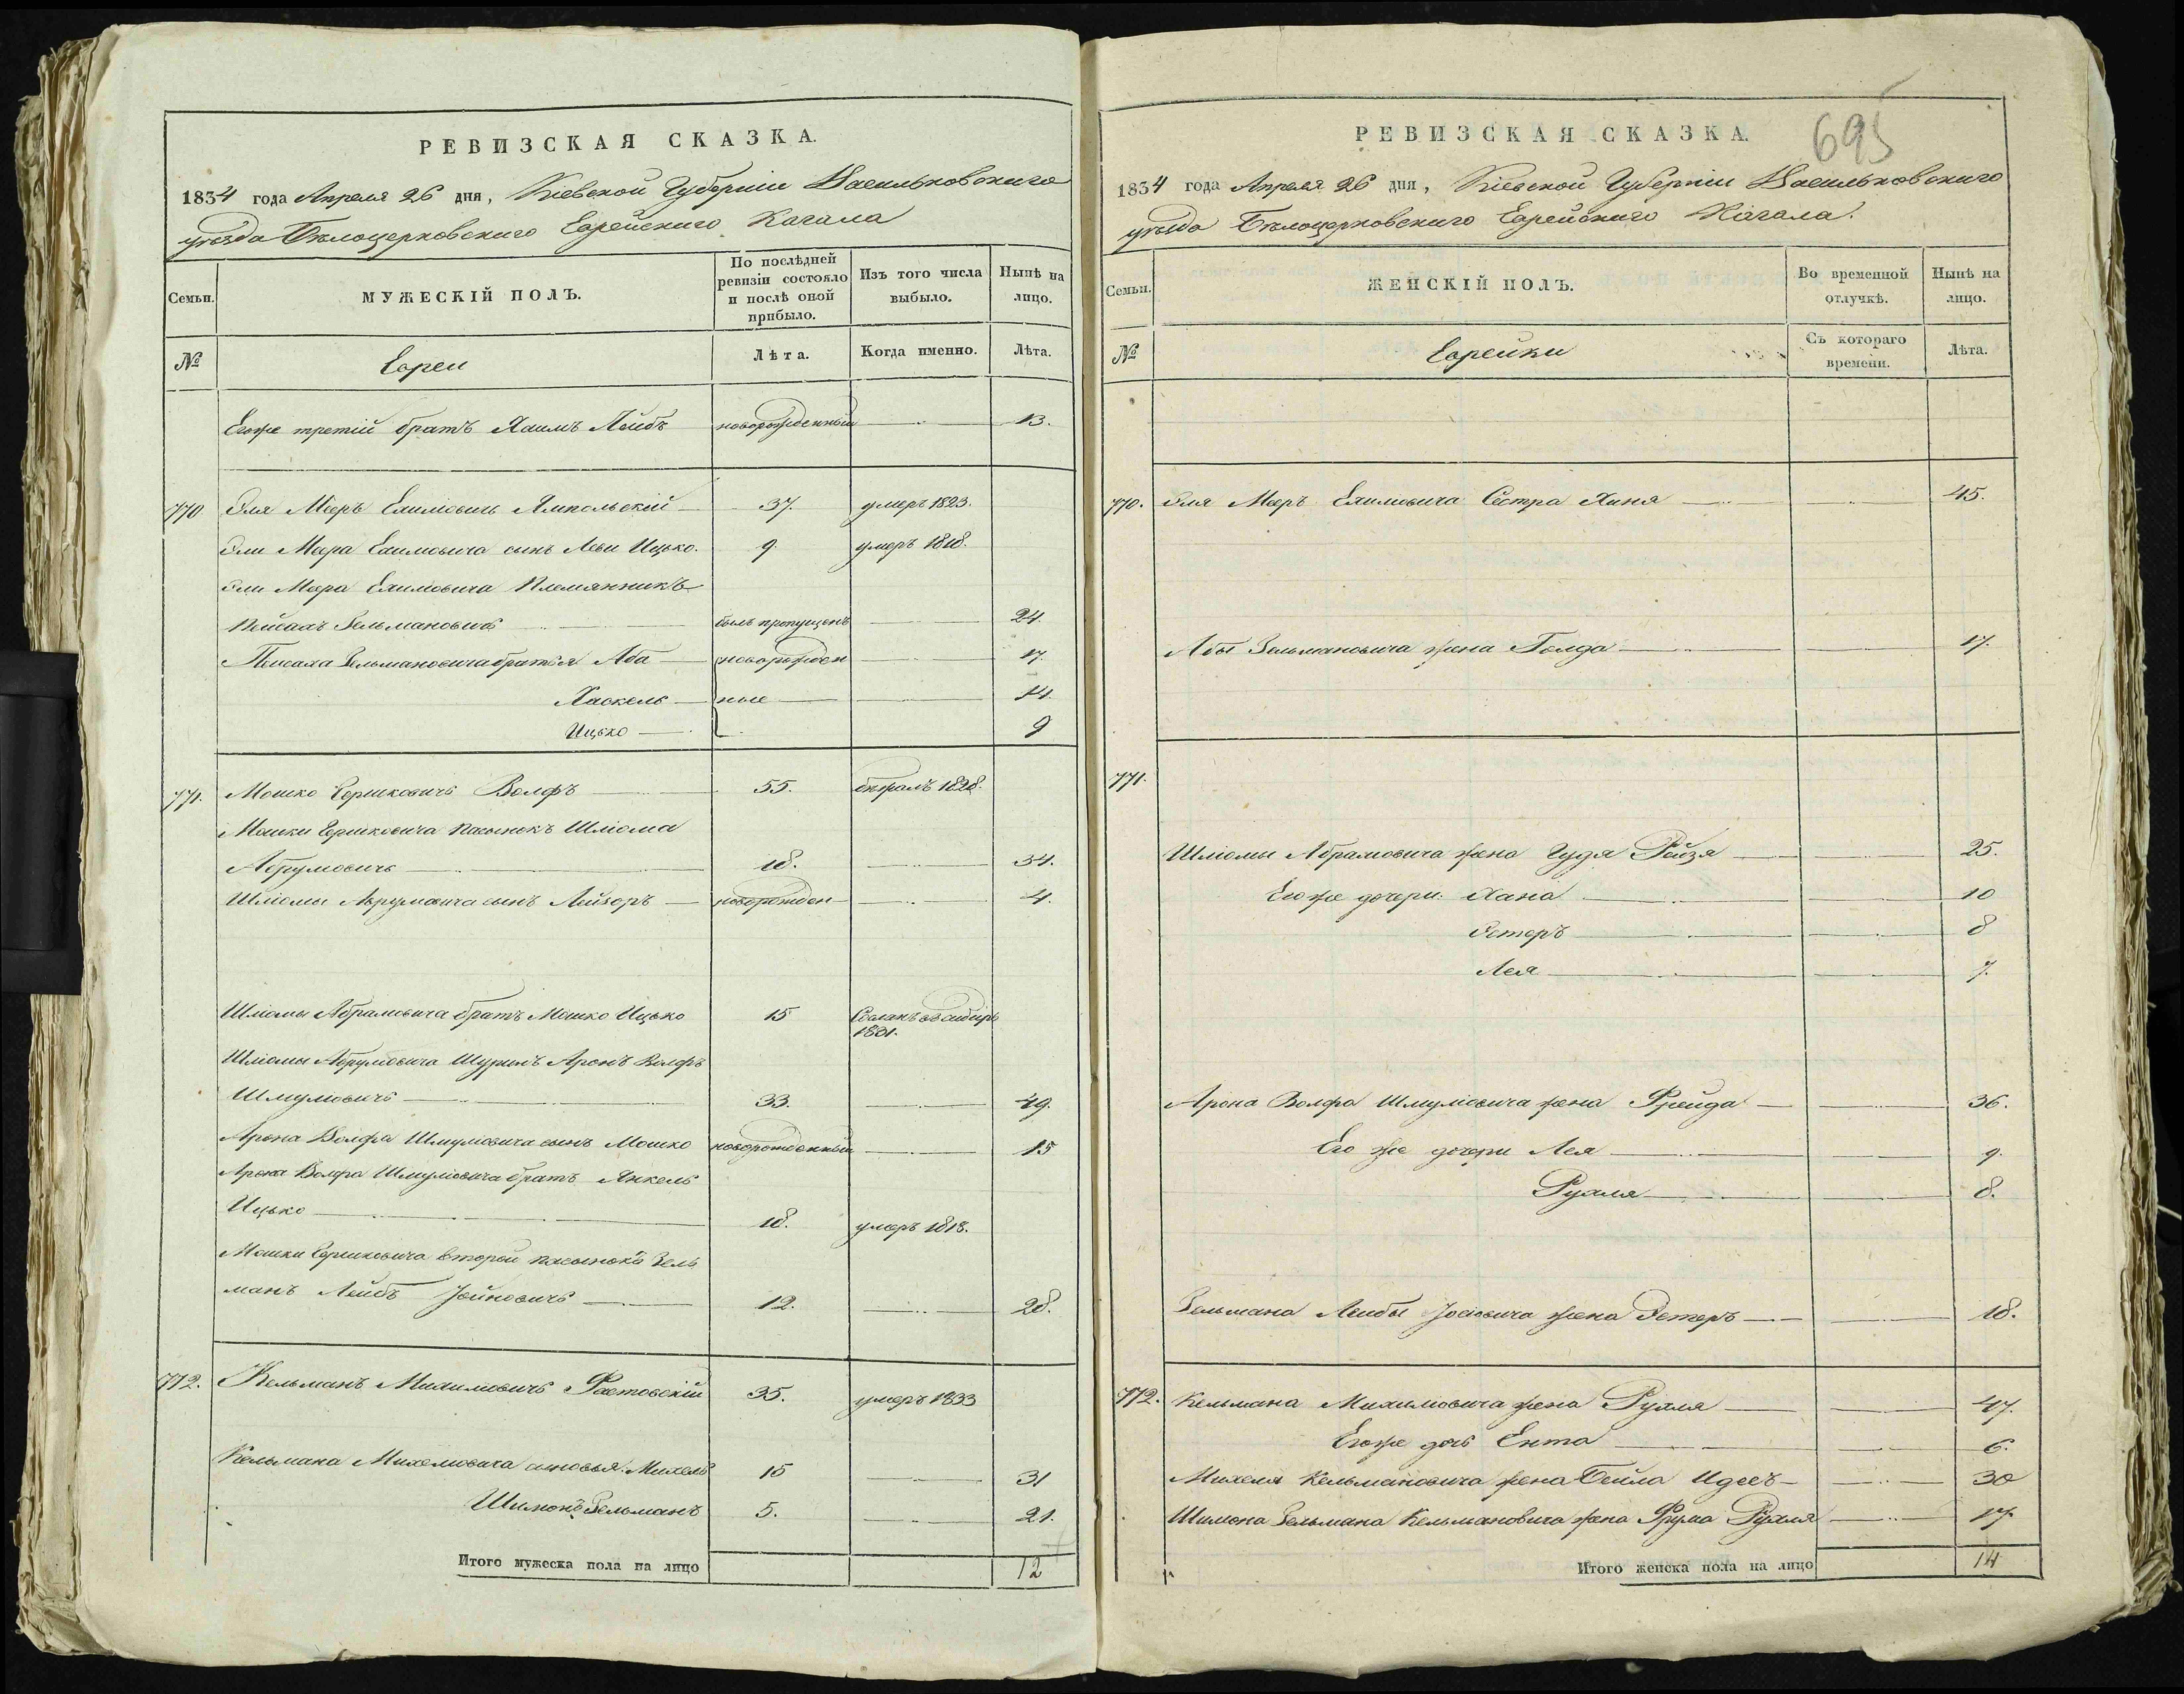 РЕВИЗСКАЯ СКАЗКА.
1834 года Апреля 26 дня, Кіевской Губерніи Васильковскаго
уезда Белоцерковскаго Еврейскаго Кагала
Семьи.
МУЖЕСКІЙ ПОЛЪ.
По послѣдней ревизіи состояло и послѣ оной прибыло.
Изъ того числа выбыло.
Нынѣ на лицо.
№
Евреи
Лѣта.
Когда именно.
Лѣта.
Егоже третій братъ Хаимъ Лейбъ новорожденный 13.
770 Эля Мееръ Ехимовичь Ямпольскій 37. умеръ 1823.
Эли Меера Ехимовича сынъ Леви Ицько. 9. умеръ 1818.
Эли Меера Ехимовича Племянникъ
Пейсахъ Зельмановичъ былъ пропущенъ 24.
Пейсаха Зельмановича братья Аба новорожден 17.
Хаскель ные 14.
Ицько 9
771. Мошко Гершковичъ Волфъ 55. бежалъ 1828.
Мошки Гершковича пасынокъ Шліома
Абрумовичъ 18. 34.
Шліомы Абрумовича сынъ Лейзоръ новорожден 4.
Шліомы Абрамовича братъ Мошко Ицько 15 Сосланъ въ Сибирь
1831.
Шліомы Абрумовича Шуринъ Аронъ Волфъ
Шмулмовичъ 33. 49.
Арона Волфа Шмулмовича сынъ Мошко новорожденный 15
Арона Волфа Шмулмовича братъ Янкель
Ицько 18. умеръ 1818.
Мошки Гершковича второй пасынокъ Зель
манъ Лейбъ Іойновичъ 12. 28.
772. Кельманъ Михимовичъ Фастовскій 35. умеръ 1833
Кельмана Михелмовича сыновья: Михель 15 31
Шимонъ Зельманъ 5. 21.
Итого мужеска пола на лицо 12
695
РЕВИЗСКАЯ СКАЗКА.
1834 года Апреля 26 дня, Кіевской Губерніи Васильковскаго
уезда Белоцерковскаго Еврейскаго Кагала.
Семьи.
ЖЕНСКІЙ ПОЛЪ.
Во временной отлучкѣ.
Нынѣ на лицо.
№
Еврейки
Съ котораго времени.
Лѣта.
770. Эля Мееръ Ехимовича Сестра Хиня 45.
Абы Зельмановича жена Голда 17.
771.
Шліомы Абрамовича жена Гудя Рейзя 25.
Егоже дочери: Хана 10
Эстеръ 8
Лея 7.
Арона Волфа Шмулмовича жена Фрейда 36.
Его же дочери Лея 9.
Рухля 8.
Зельмана Лейбы Іосіовича жена Эстеръ 18.
772. Кельмана Михимовича жена Рухля 47.
Егоже дочь Ента 6.
Михеля Кельмановича жена Бейла Идесъ 30
Шимона Зельмана Кельмановича жена Фрума Рухля 17.
Итого женска пола на лицо 14